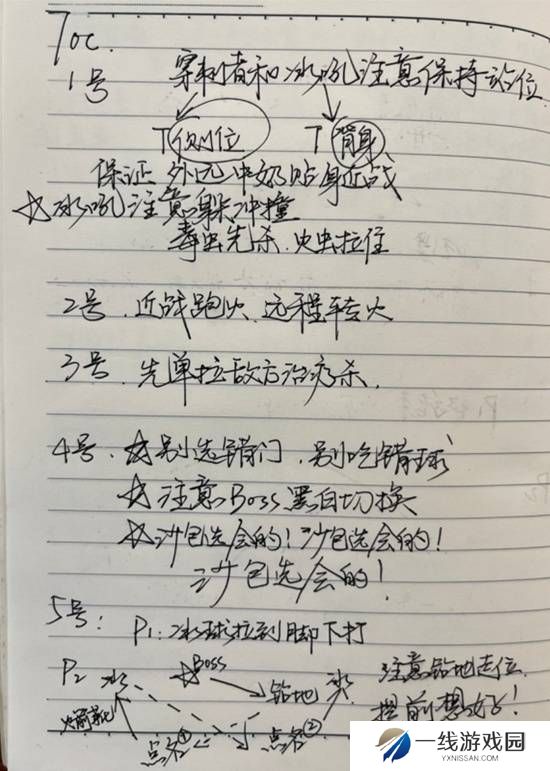 Toc.
1号 穿刺者和冰吼注意保持站位
T侧位 T背身
保证外远中奶贴身近战
☆冰吼注意躲冲撞
毒虫先杀.火虫拉住
2号.近战跑火、远程转火
3号.先单拉敌方治疗杀.
4号.☆别选错门、别吃错球
☆注意Boss黑白切换
☆沙包选会的!沙包选会的!
沙包选会的!
5号: P1:冰球拉到脚下打
P2 冰 ☆Boss 钻地 冰 注意钻地走位
火箭靴 点名① 点名② 提前想好!
一线游戏园
WWW.YXNISSAN.COM